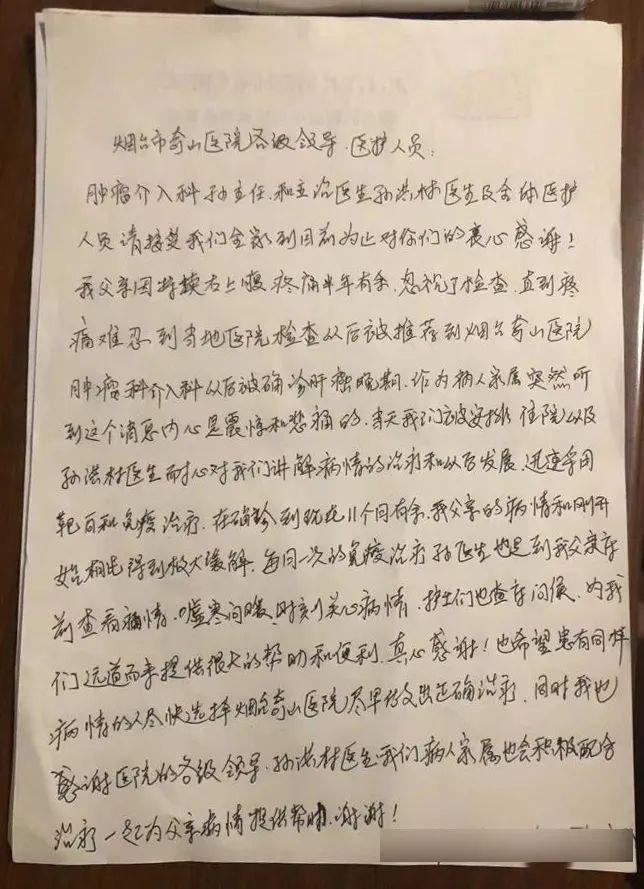 烟台市奇山医院各级领导、医护人员:
肿瘤介入科孙主任、和主治医生孙洪林医生及全体医护
人员请接受我们全家到目前为止对你们的衷心感谢!
我父亲因持续右上腹疼痛半年有余,忽视了检查,直到疼
痛难忍到当地医院检查从后被推荐到烟台奇山医院
肿瘤科介入科以后被确诊肝癌晚期.作为病人家属突然听
到这个消息内心是震惊和悲痛的.当天我们被安排住院以及
孙洪林医生耐心对我们讲解病情的治疗和以后发展,迅速采用
靶向和免疫治疗.在确诊到现在11个月有余,我父亲的病情和刚开
始相比得到极大缓解,每月一次的免疫治疗孙医生也是到我父亲床
前查看病情,嘘寒问暖,时刻关心病情,护士们也查床问候,为我
们远道而来提供很大的帮助和便利,真心感谢!也希望患有同样
病情的人尽快选择烟台奇山医院尽早做出正确治疗,同时我也
感谢医院的各级领导,孙洪林医生,我们病人家属也会积极配合
治疗一起为父亲病情提供帮助,谢谢!